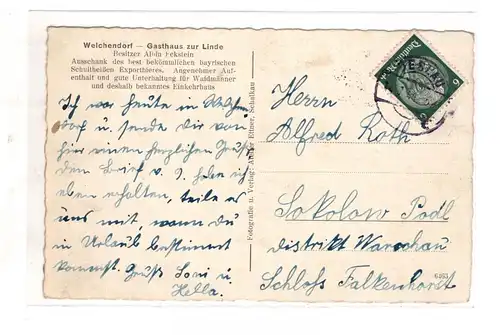 Welchendorf — Gasthaus zur Linde
Besitzer Albin Eckstein
Ausschank des best bekömmlichen bayrischen
Schultheißen Exportbieres. Angenehmer Auf-
enthalt und gute Unterhaltung für Waldmänner
und deshalb bekanntes Einkehrhaus
Ich war heute in Welchen
dorf u. sende dir von
hier einen herzlichen Gruß
den Brief v. 9. habe ich
eben erhalten, teile es
uns mit, wann du
in Urlaub bestimmt
kommst. Gruß Toni u.
Hella.
Fotografie u. Verlag: Elsner, Schalkau
Deutsches Reich
6
Herrn
Alfred Roth
Sokolow Podl
Distrikt Warschau
Schloss Falkenhorst